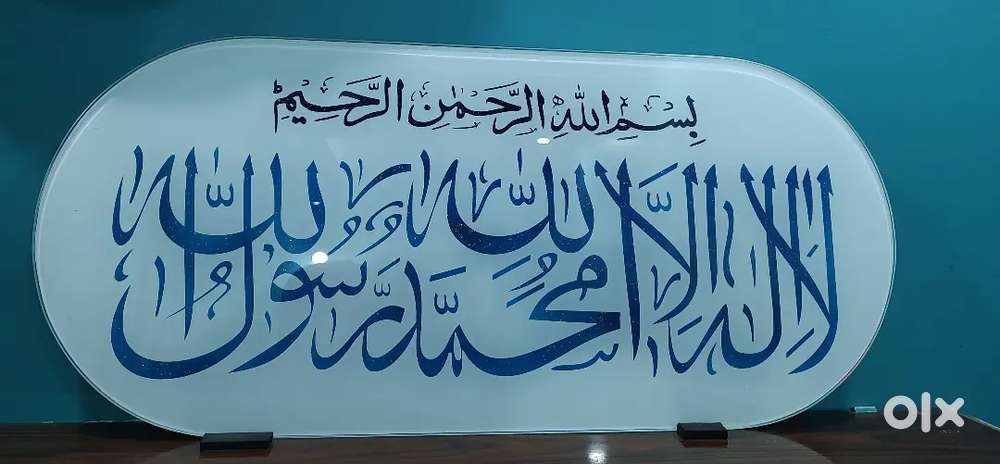 بِسْمِ اللهِ الرَّحْمٰنِ الرَّحِيْمِ
لَا إِلٰهَ إِلَّا اللهُ مُحَمَّدٌ رَّسُوْلُ اللهِ
olx
INDIA